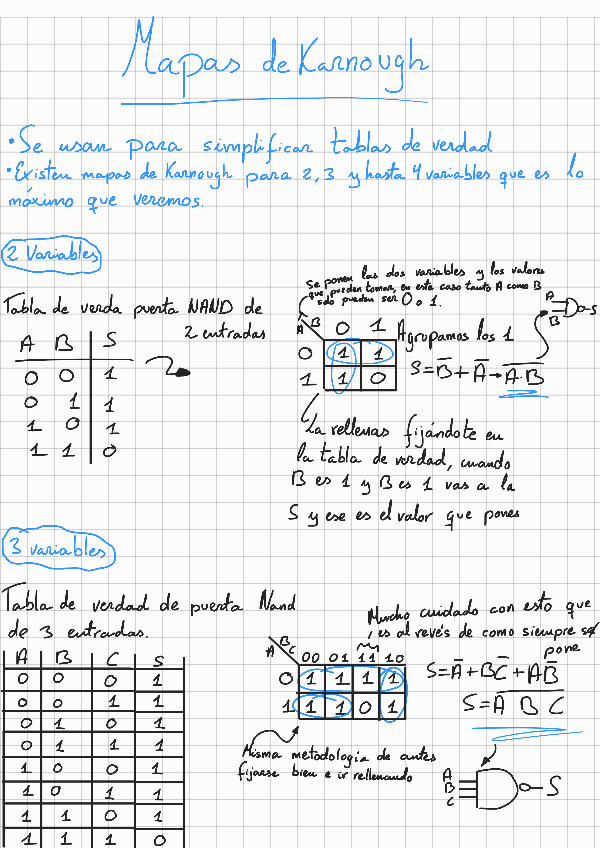 Mapas de Karnough
• Se usan para simplificar tablas de verdad
• Existen mapas de Karnough para 2, 3 y hasta 4 variables que es lo
máximo que veremos.
2 Variables
Tabla de verda puerta NAND de
2 entradas
A B S
0 0 1
0 1 1
1 0 1
1 1 0
Se ponen las dos variables y los valores
que pueden tomar, en este caso tanto A como B
solo pueden ser 0 o 1.
A B 0 1
0 1 1
1 1 0
Agrupamos los 1
S = B̅ + A̅ → A̅·̅B̅
A
B
S
La rellenas fijándote en
la tabla de verdad, cuando
B es 1 y B es 1 vas a la
S y ese es el valor que pones
3 variables
Tabla de verdad de puerta Nand
de 3 entradas.
A B C S
0 0 0 1
0 0 1 1
0 1 0 1
0 1 1 1
1 0 0 1
1 0 1 1
1 1 0 1
1 1 1 0
Mucho cuidado con esto que
es al revés de como siempre se
pone
A B C 00 01 11 10
0 1 1 1 1
1 1 1 0 1
S = A̅ + BC̅ + AB̅
S = A̅ ̅B̅ ̅C̅
Misma metodología de antes
fijarse bien e ir rellenando
A
B
C
S